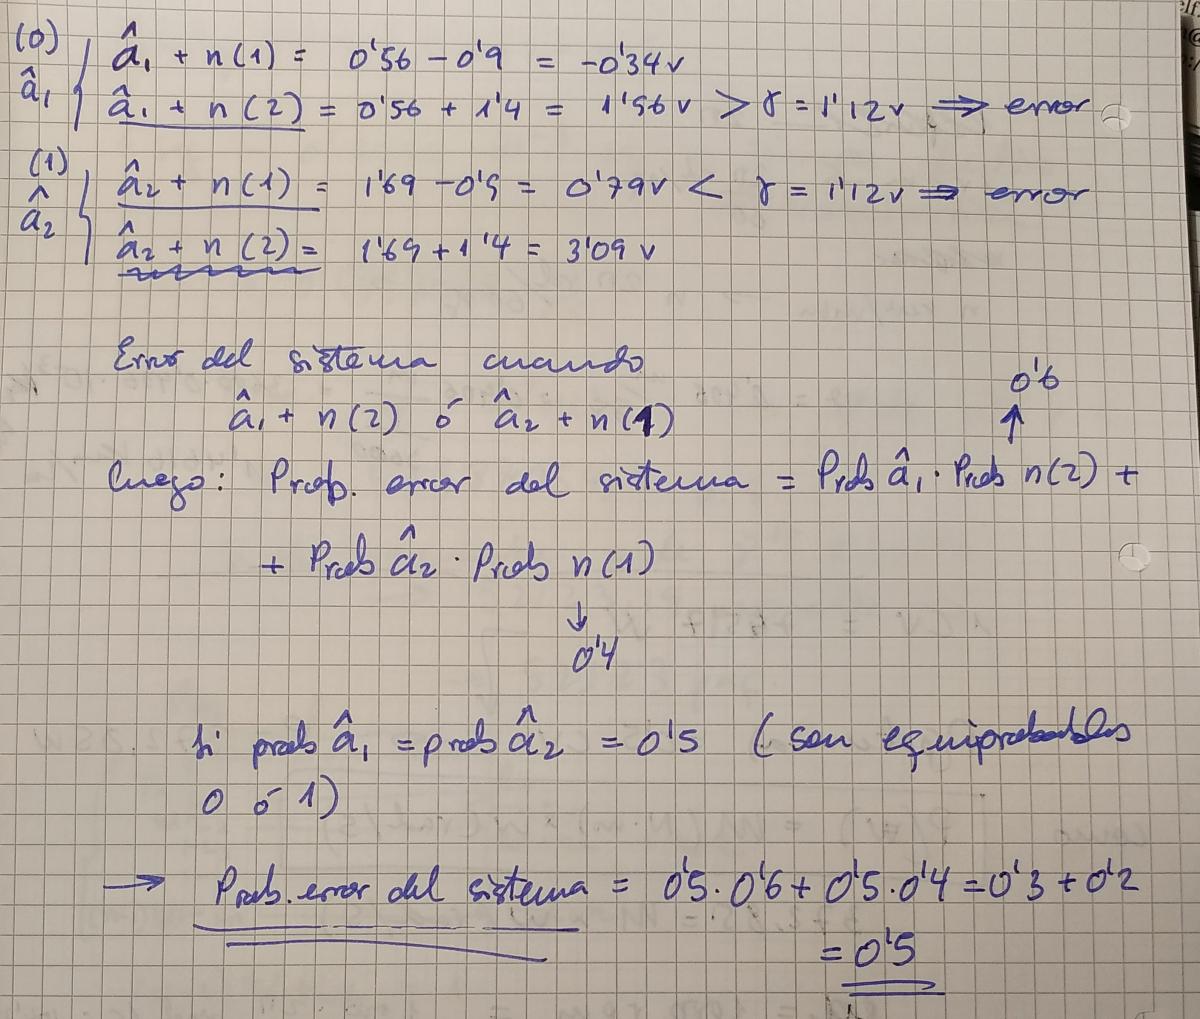 (0)
â₁ { â₁ + n(1) = 0'56 - 0'9 = -0'34v
â₁ + n(2) = 0'56 + 1'4 = 1'96v > γ = 1'12v ⇒ error
(1)
â₂ { â₂ + n(1) = 1'69 - 0'9 = 0'79v < γ = 1'12v ⇒ error
â₂ + n(2) = 1'69 + 1'4 = 3'09 v
Error del sistema cuando
â₁ + n(2) ó â₂ + n(1)
0'6
↑
luego: Prob. error del sistema = Prob â₁ · Prob n(2) +
+ Prob â₂ · Prob n(1)
↓
0'4
Si prob â₁ = prob â₂ = 0'5 (son equiprobables
0 ó 1)
→ Prob. error del sistema = 0'5 · 0'6 + 0'5 · 0'4 = 0'3 + 0'2
= 0'5